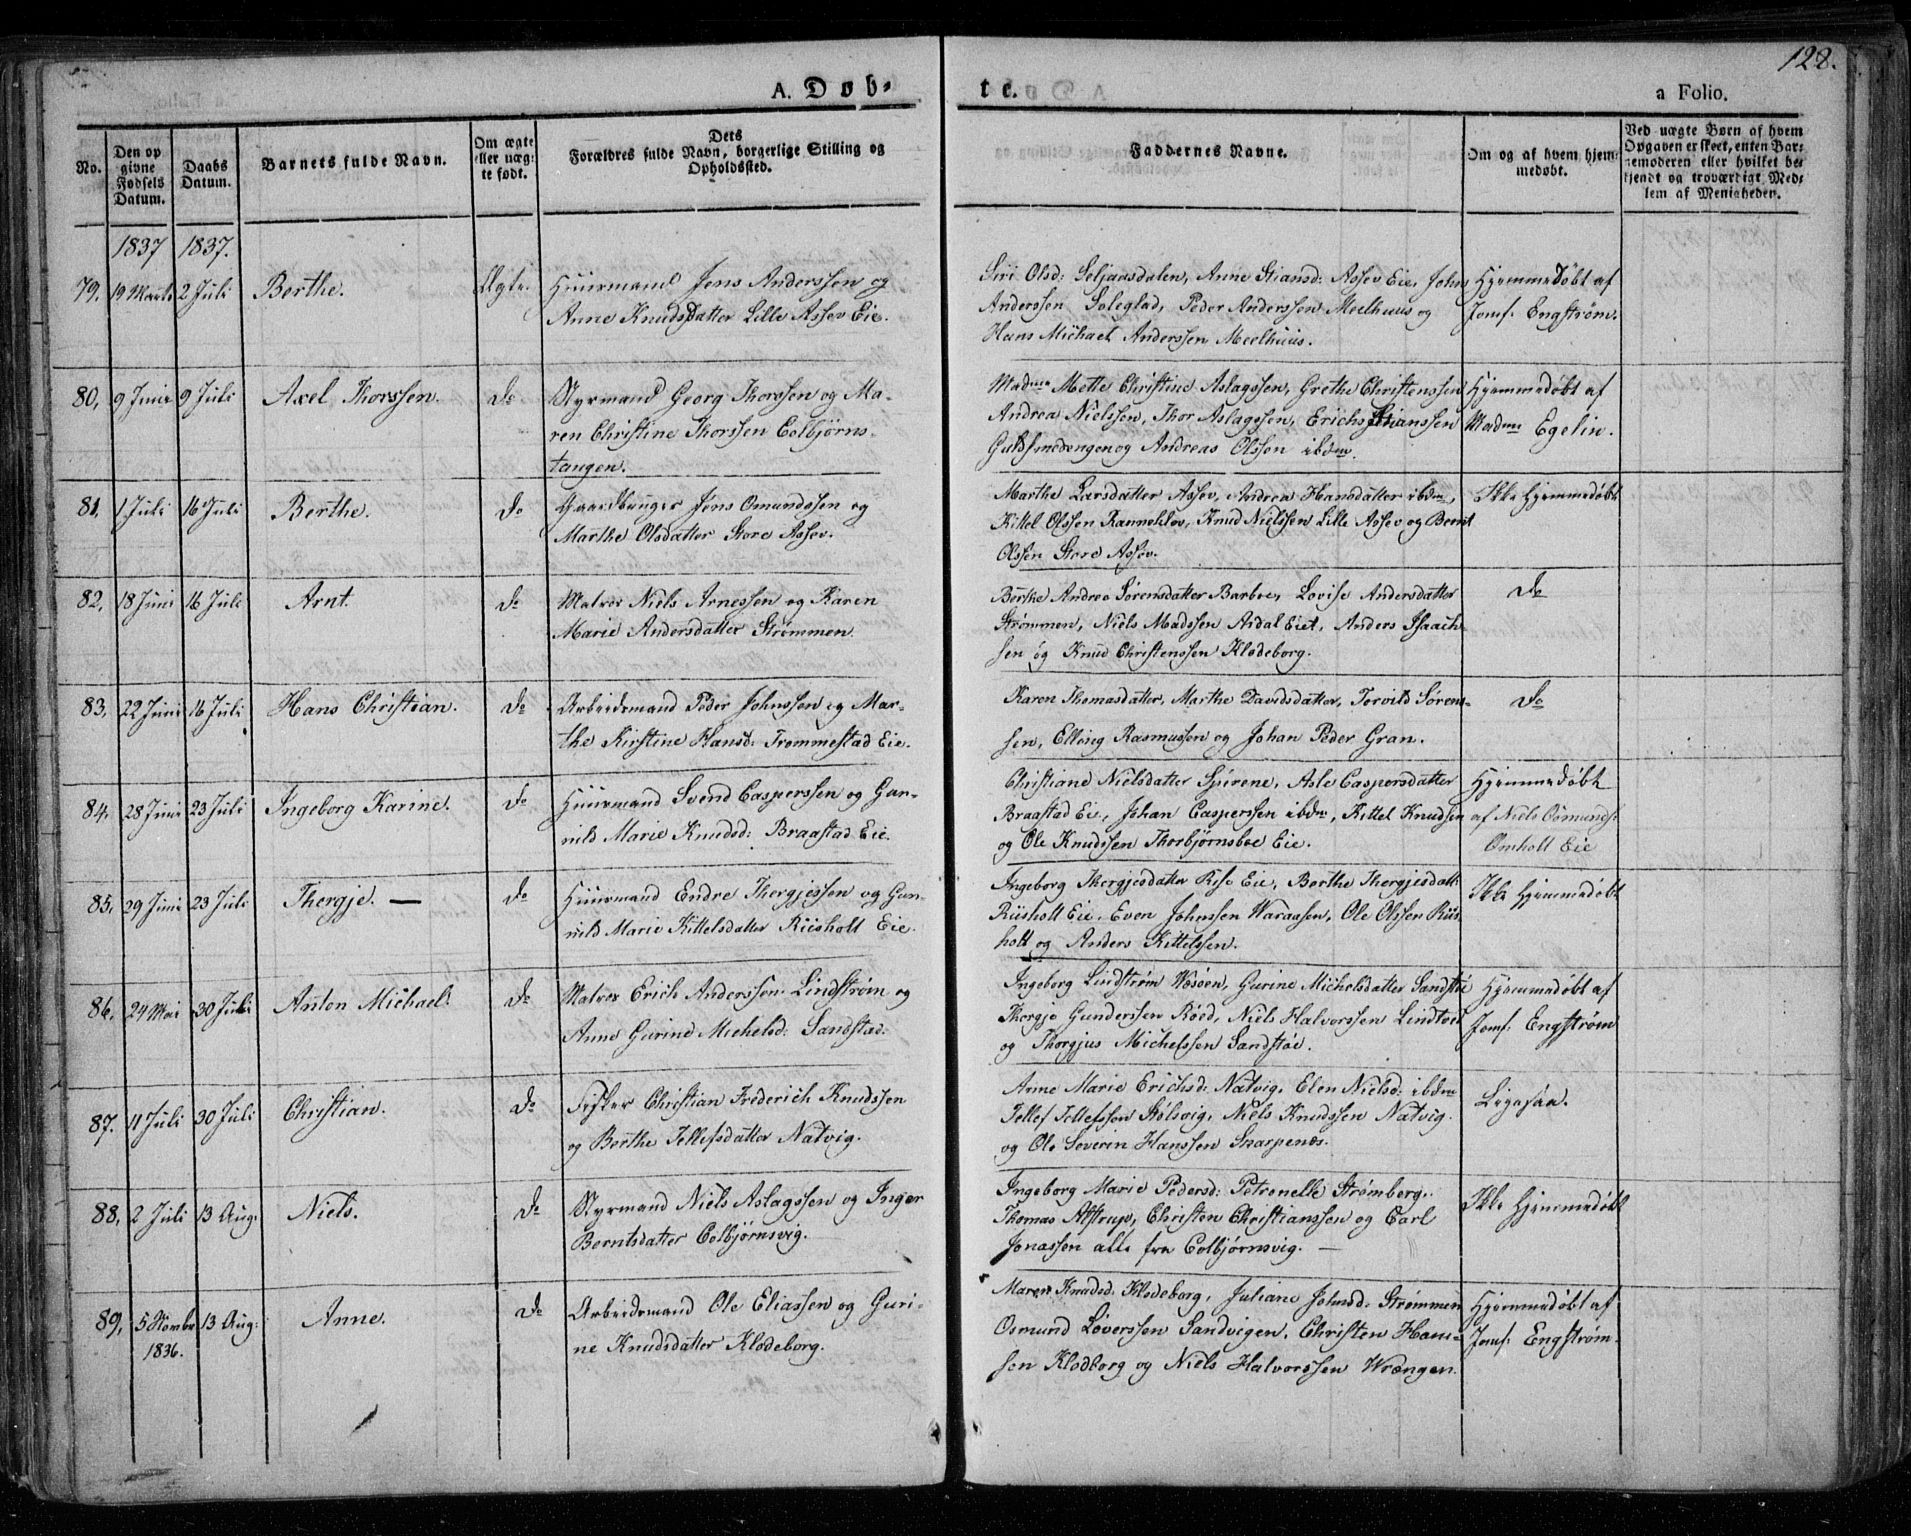 128.
A. Døb-
te.
a Folio.
No.
Den op
givne
Fødsels
Datum.
Daabs
Datum.
Barnets fulde Navn.
Om ægte
eller uæg-
te født.
Dets
Forældres fulde Navn, borgerlige Stilling og
Opholdssted.
Faddernes Navne.
Om og af hvem hjem-
medøbt.
Ved uægte Børn af hvem
Opgaven er skeet, enten Bar-
nemoderen eller hvilket be-
kjendt og troværdigt Med-
lem af Menigheden.
1837 1837.
79. 19 Marts 2 Juli Berthe. Ægte. Huurmand Jens Anderssen og
Anne Knudsdatter Lille Assev Eie.
Siri Olsd: Seljaasdalen, Anne Stiansd: Assev Eie, John
Anderssen Soleglad, Peder Anderssen Meelhuus og
Hans Michael Anderssen Meelhuus.
Hjemmedøbt af
Jomf. Engstrøm.
80. 9 Juni 9 Juli Axel Thorssen. do Styrmand Georg Thorssen og Ma-
ren Christine Thorssen Colbjørns-
tangen.
Madme Mette Christine Aslagssen, Grethe Christenssen
Andrea Nielssen, Thor Aslagssen, Erich Stianssen
Guldsmedengen og Andreas Olssen ibdm.
Hjemmedøbt af
Madme Egelin.
81. 1 Juli 16 Juli Berthe. do Gaardbruger Jens Omundssen og
Marthe Olsdatter Store Assev.
Marthe Larsdatter Assev, Andrea Hansdatter ibdm,
Kittel Olssen Rannekløv, Knud Nielssen Lille Assev og Berent
Olssen Store Assev.
Ikke Hjemmedøbt
82. 18 Juni 16 Juli Arnt. do Matros Niels Arnessen og Karen
Marie Andersdatter Strømmen.
Birthe Andrea Sørensdatter Barboe, Lovise Andersdatter
Strømmen, Niels Madssen Ardal Eiet, Anders Isaach-
sen og Knud Christenssen Klødeborg.
do
83. 22 Juni 16 Juli Hans Christian. do Arbeidsmand Peder Johnssen og Mar-
the Kirstine Hansd: Trommestad Eie.
Karen Thomasdatter, Marthe Davidsdatter, Torvild Søren-
sen, Elling Rasmussen og Johan Peder Gran.
do
84. 28 Juni 23 Juli Ingeborg Karine. do Huurmand Svend Casperssen og Gun-
nild Marie Knudsd: Braastad Eie.
Christiane Nielsdatter Spirene, Asle Caspersdatter
Braastad Eie, Johan Casperssen ibdm, Kittel Knudsen
og Ole Knudssen Thorbjørnsboe Eie.
Hjemmedøbt
af Niels Osmunds:
Omholt Eie
85. 29 Juni 23 Juli Thergje. — do Huurmand Endre Thergjessen og Gun-
nild Marie Kittelsdatter Riisholt Eie.
Ingeborg Thergjesdatter Rise Eie, Berthe Thergjesdatt:
Riisholt Eie, Even Johnssen Waraasen, Ole Olssen Riis-
holt og Anders Kittelssen.
Ikke Hjemmedøbt
86. 24 Mai 30 Juli Anton Michael. do Matros Erich Anderssen Lindstrøm og
Anne Gurine Michelsd: Sandstød:
Ingeborg Lindstrøm Næsøen, Gurine Michelsdatter Sandstøe
Thergje Gunderssen Røed, Niels Halvorssen Lindtved
og Thorgjus Michelssen Sandstøe.
Hjemmedøbt af
Jomf. Engstrøm
87. 11 Juli 30 Juli Christian. do Fisker Christian Frederich Knudssen
og Berthe Tellefsdatter Natvig.
Anne Marie Erichsd: Natvig, Elen Nielsd: ibdm
Tellef Tellefssen Kølsvig, Niels Knudssen Natvig.
og Ole Severin Hanssen Skarpenæs.
Ligesaa.
88. 2 Juli 13 Aug. Niels. do Styrmand Niels Aslagssen og Inger
Berntsdatter Colbjørnsvig.
Ingeborg Marie Pedersd: Petronelle Strømberg.
Thomas Alstrup, Christen Christianssen og Carl
Jonassen alle fra Colbjørnsvig. —
Ikke Hjemmedøbt
89. 5 Novbr 13 Aug: Anne. do Arbeidsmand Ole Eliassen og Guri-
1836.
ne Knudsdatter Klødeborg.
Maren Knudsd: Klødeborg, Juliane Johnsd: Strømmen
Osmund Løverssen Sandvigen, Christen Han-
sen Klødborg og Niels Halvorssen Wrængen.
Hjemmedøbt af
Jomf. Engstrøm.